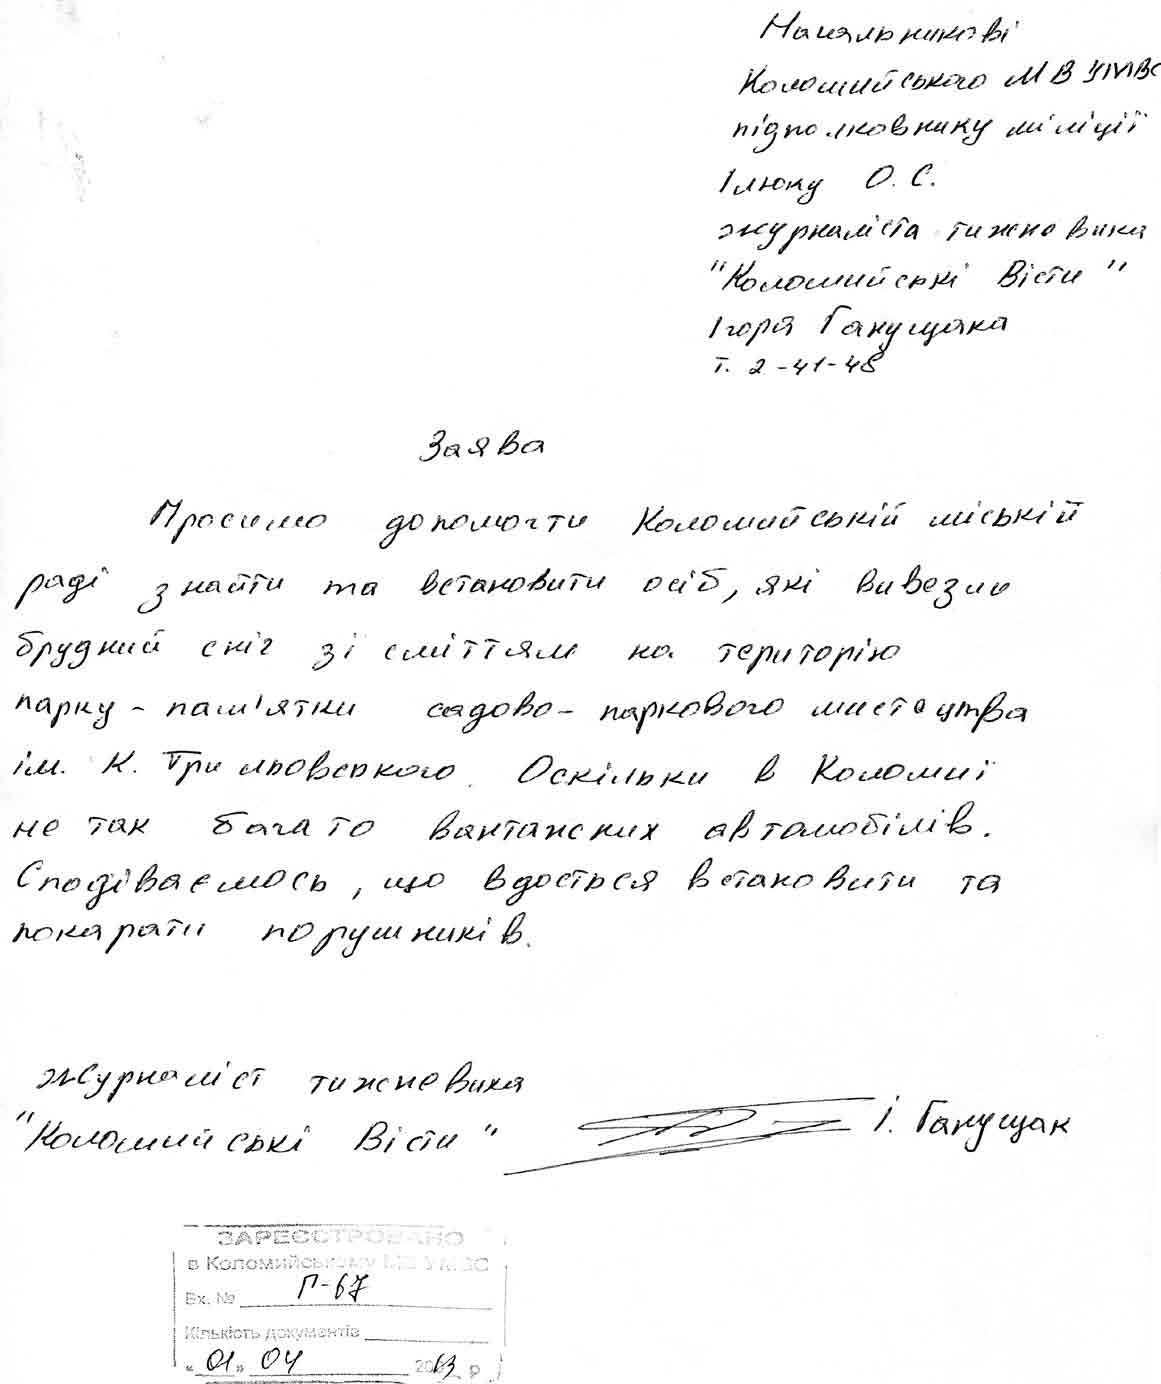 Начальникові
Коломийського МВ УМВС
підполковнику міліції
Ілюку О. С.
журналіста тижневика
"Коломийські Вісти"
Ігоря Ганущака
т. 2-41-48
Заява
Просимо допомогти Коломийській міській
раді знайти та встановити осіб, які вивезли
брудний сніг зі сміттям на територію
парку - пам'ятки садово-паркового мистецтва
ім. К. Трильовського. Оскільки в Коломиї
не так багато вантажних автомобілів.
Сподіваємось, що вдасться встановити та
покарати порушників.
журналіст тижневика
"Коломийські Вісти" І. Ганущак
ЗАРЕЄСТРОВАНО
в Коломийському МВ УМВС
Вх. № Г-67
Кількість документів
"01" 04 2013 р